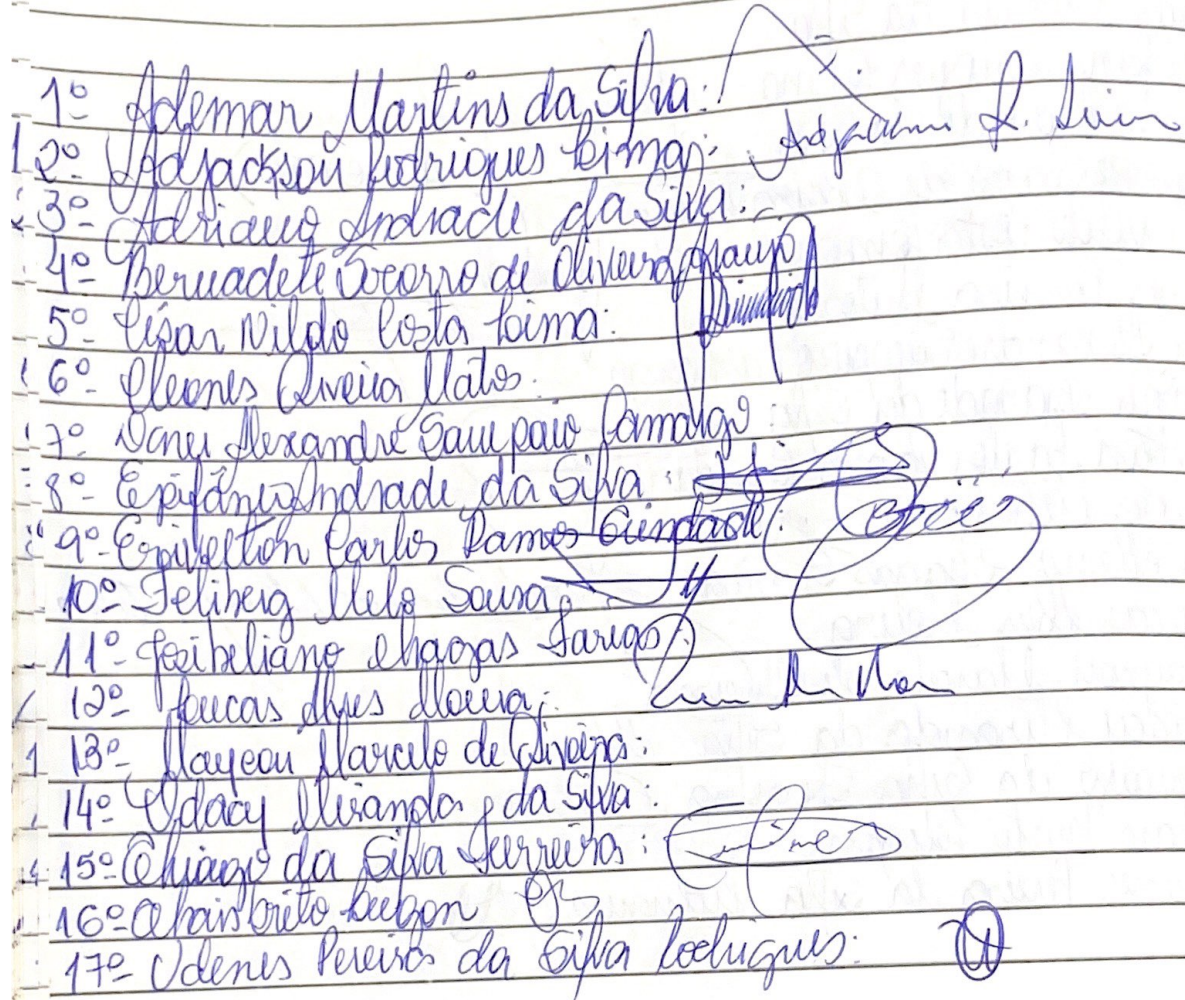 1º Ademar Martins da Silva:
2º Adjackson Rodrigues Lima:
3º Adriano Andrade da Silva:
4º Bernadete Socorro de Oliveira Araujo
5º César Nildo Costa Lima:
6º Cleones Oliveira Matos:
7º Alexandre Sampaio Camargo
8º Epifânio Andrade da Silva:
9º Erivelton Carlos Ramos Trindade:
10º Feliberg Melo Sousa:
11º Chagas Farias:
12º Lucas Alves Moura:
13º Maycon Marcelo de Oliveira:
14º Odacy Miranda da Silva:
15º Thiago da Silva Ferreira
16º Thais Brito
17º Udenes Pereira da Silva Rodrigues: